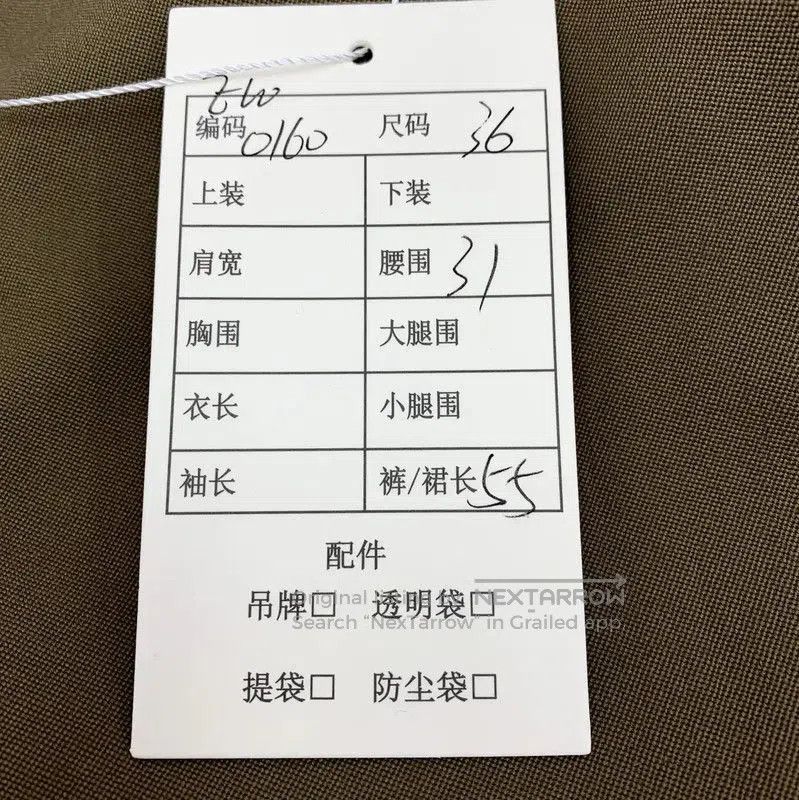 编码 0160 尺码 36
上装 下装
肩宽 腰围 31
胸围 大腿围
衣长 小腿围
袖长 裤/裙长 55
配件
吊牌□ 透明袋□
NEXTARROW
Search "NexTarrow" in Grailed app
提袋□ 防尘袋□